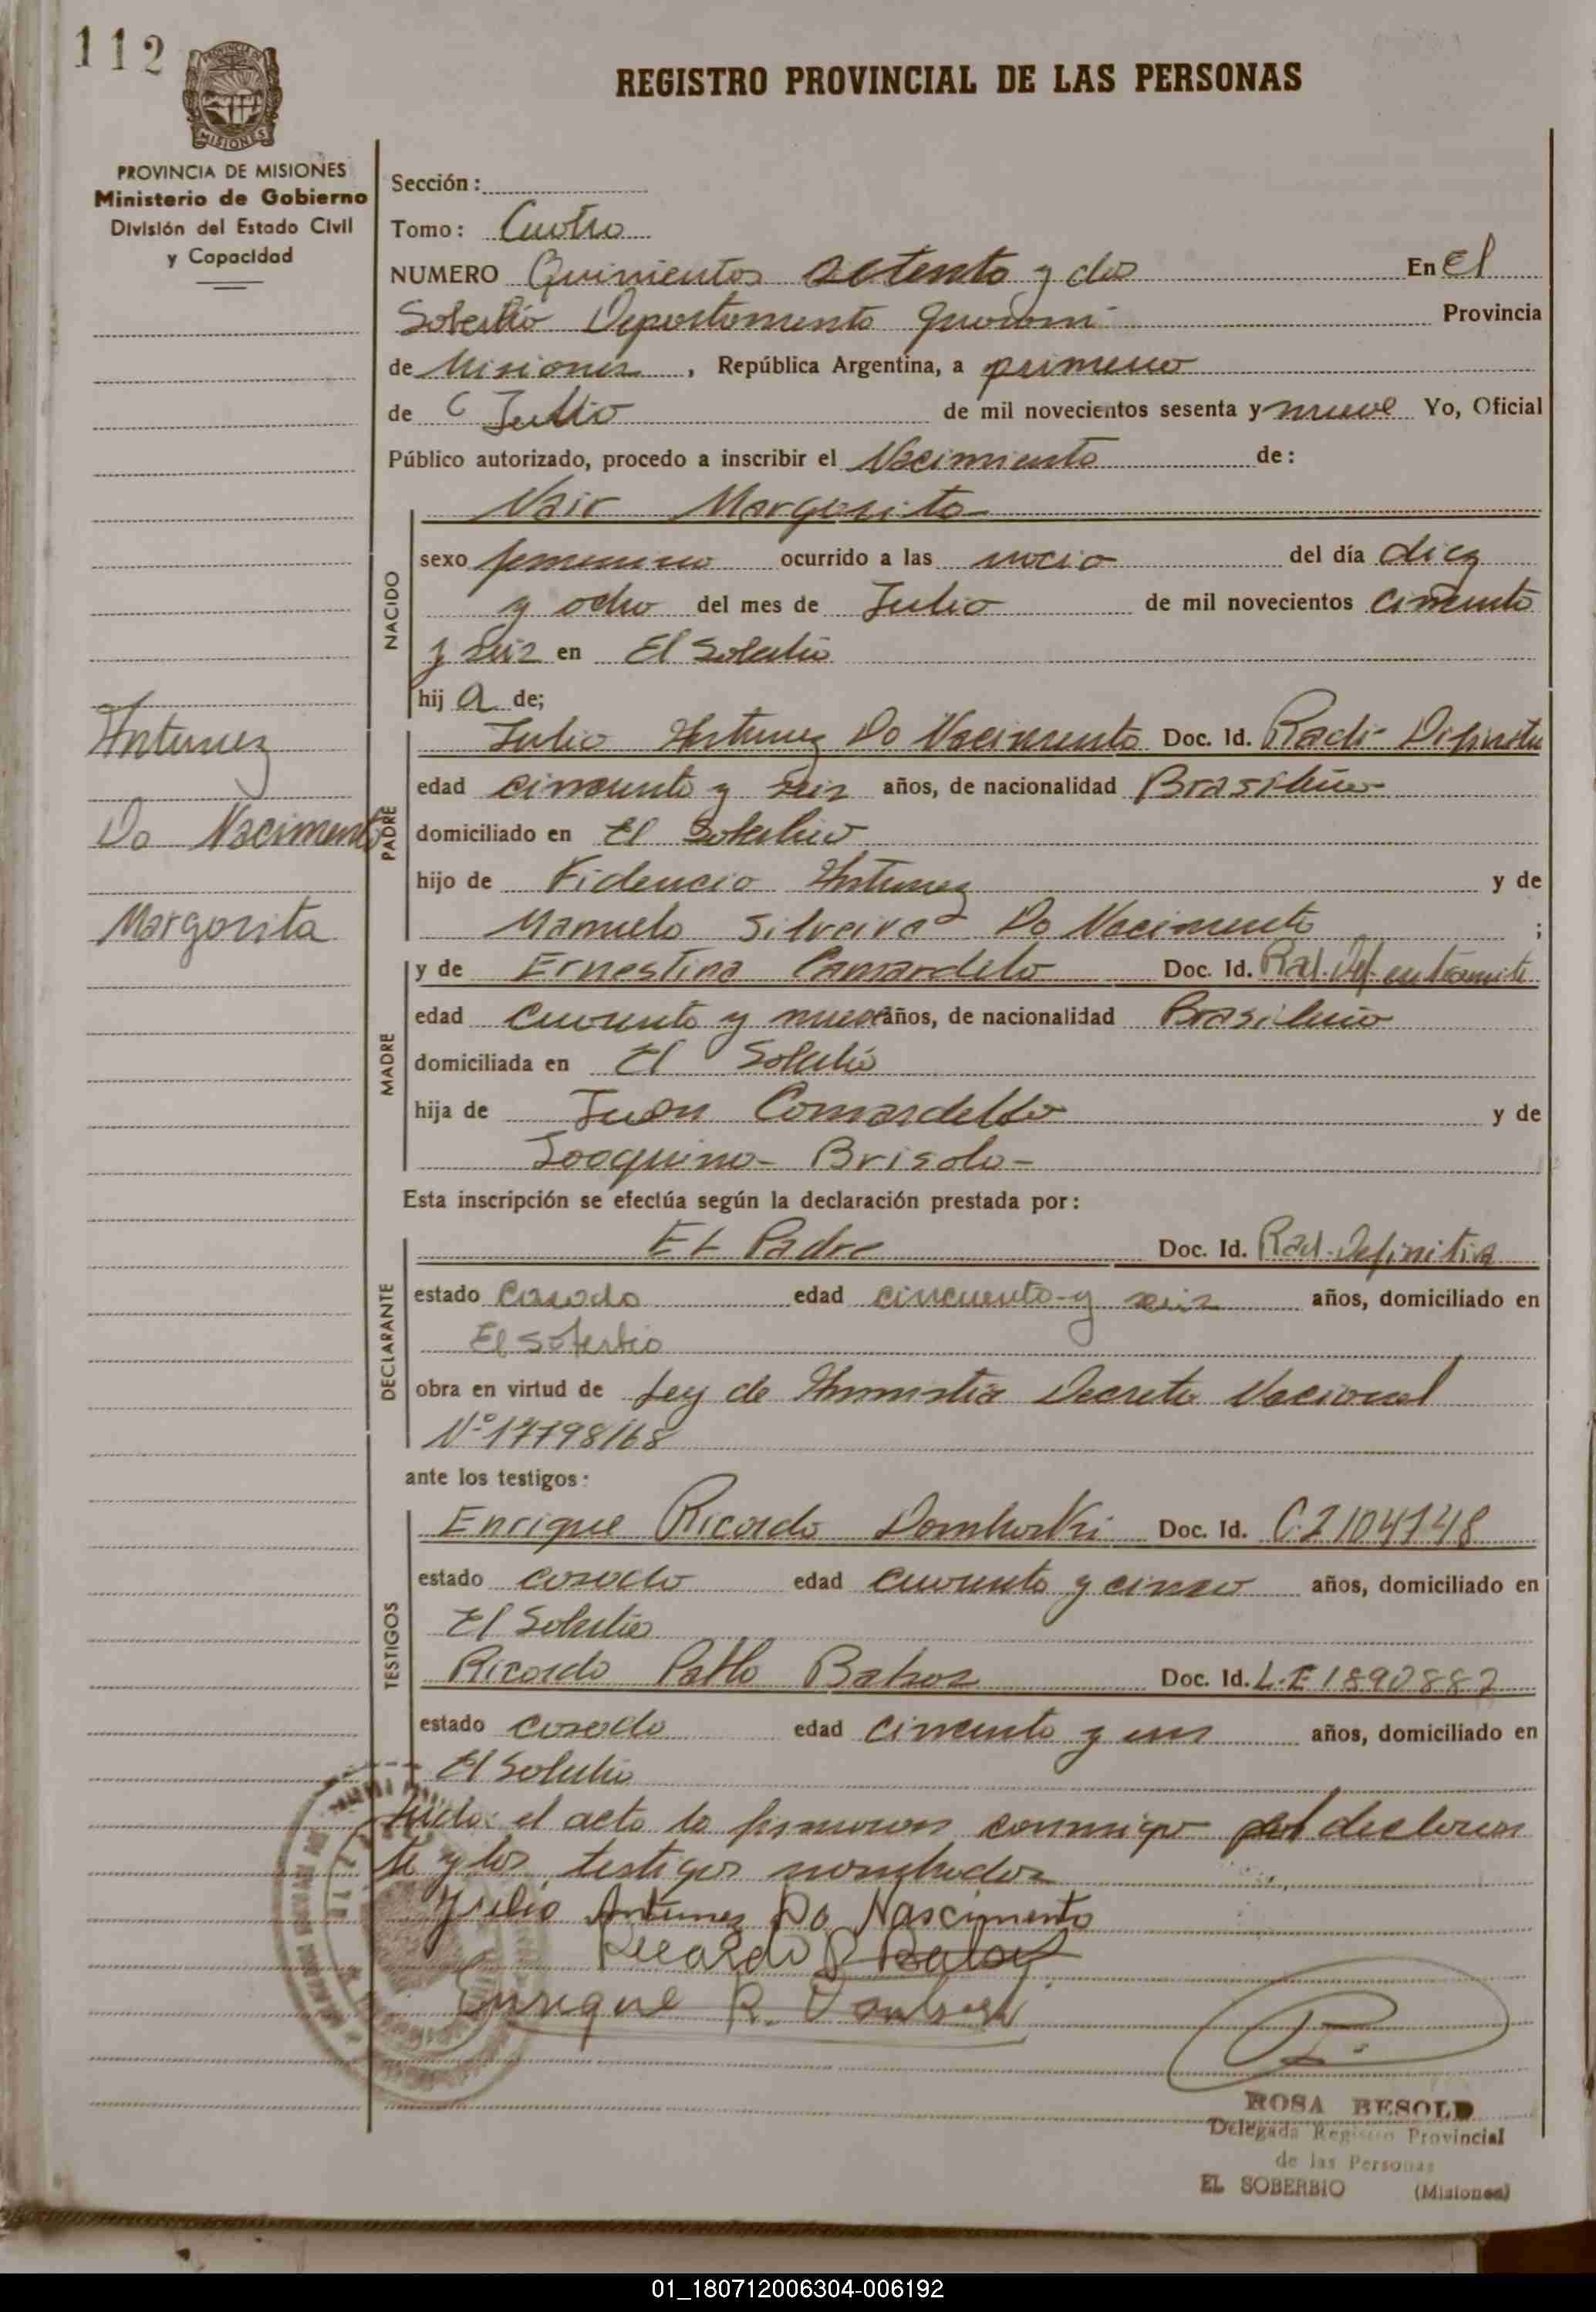 112
PROVINCIA DE MISIONES
Ministerio de Gobierno
División del Estado Civil
y Capacidad
REGISTRO PROVINCIAL DE LAS PERSONAS
Sección:
Tomo: Cuatro
NUMERO Quinientos setenta y dos En El
Soberbio Departamento Guaraní Provincia
de Misiones, República Argentina, a primero
de Julio de mil novecientos sesenta y nueve Yo, Oficial
Público autorizado, procedo a inscribir el Nacimiento de:
Nair Margarita
NACIDO
sexo femenino ocurrido a las del día diez
y ocho del mes de Julio de mil novecientos cincuenta
y seis en El Soberbio
hija de;
Antunez
Do Nacimento
Margarita
PADRE
Julio Antunez Do Nacimento Doc. Id. Radi- Definitiv
edad cincuenta y seis años, de nacionalidad Brasileño
domiciliado en El Soberbio
hijo de Fidencio Antunez y de
Manuela Silveira Do Nacimento ;
MADRE
y de Ernestina Camardelo Doc. Id. Rad. Def. en tramite
edad cuarenta y nueve años, de nacionalidad Brasileña
domiciliada en El Soberbio
hija de Juan Comardello y de
Joaquina- Brisola-
Esta inscripción se efectúa según la declaración prestada por:
DECLARANTE
EL Padre Doc. Id. Rad-Definitiva
estado Casado edad cincuenta-y seis años, domiciliado en
El Soberbio
obra en virtud de Ley de Amnistia Decreto Nacional
Nº 17798/68
ante los testigos:
TESTIGOS
Enrique Ricardo Domborski Doc. Id. C.I 104148
estado casado edad cuarenta y cinco años, domiciliado en
El Soberbio
Ricardo Pablo Doc. Id. L.E 1890882
estado casado edad cincuenta y un años, domiciliado en
El Soberbio
el acta la firmaron conmigo el declaran
te y los testigos nombrados
Julio Antunez Do Nascimento
Ricardo P.
Enrique R.
ROSA BESOLD
Delegada Registro Provincial
de las Personas
EL SOBERBIO (Misiones)
01_180712006304-006192